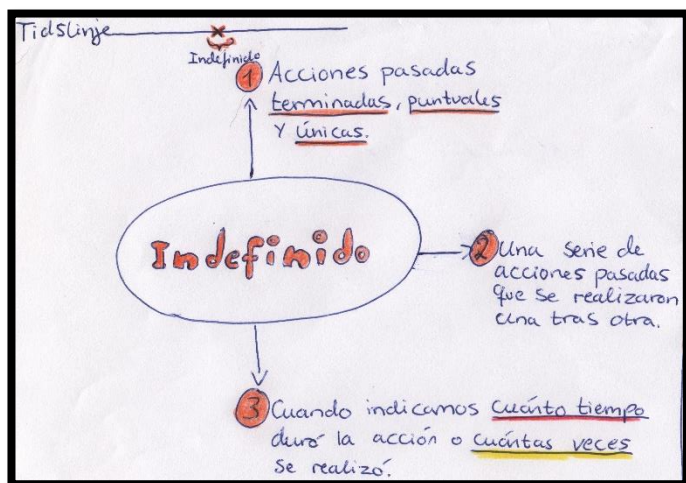 Tidslinje
Indefinido
1 Acciones pasadas
terminadas, puntuales
y únicas.
Indefinido
2 Una serie de
acciones pasadas
que se realizaron
una tras otra.
3 Cuando indicamos cuánto tiempo
duró la acción o cuántas veces
se realizó.